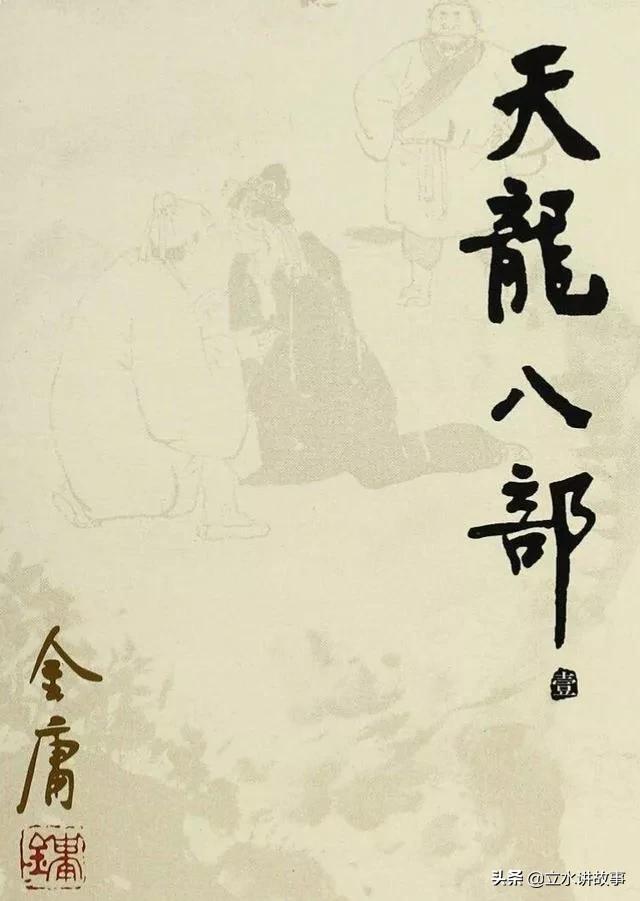 天龍八部
壹
金庸
金庸
头条 @立水讲故事